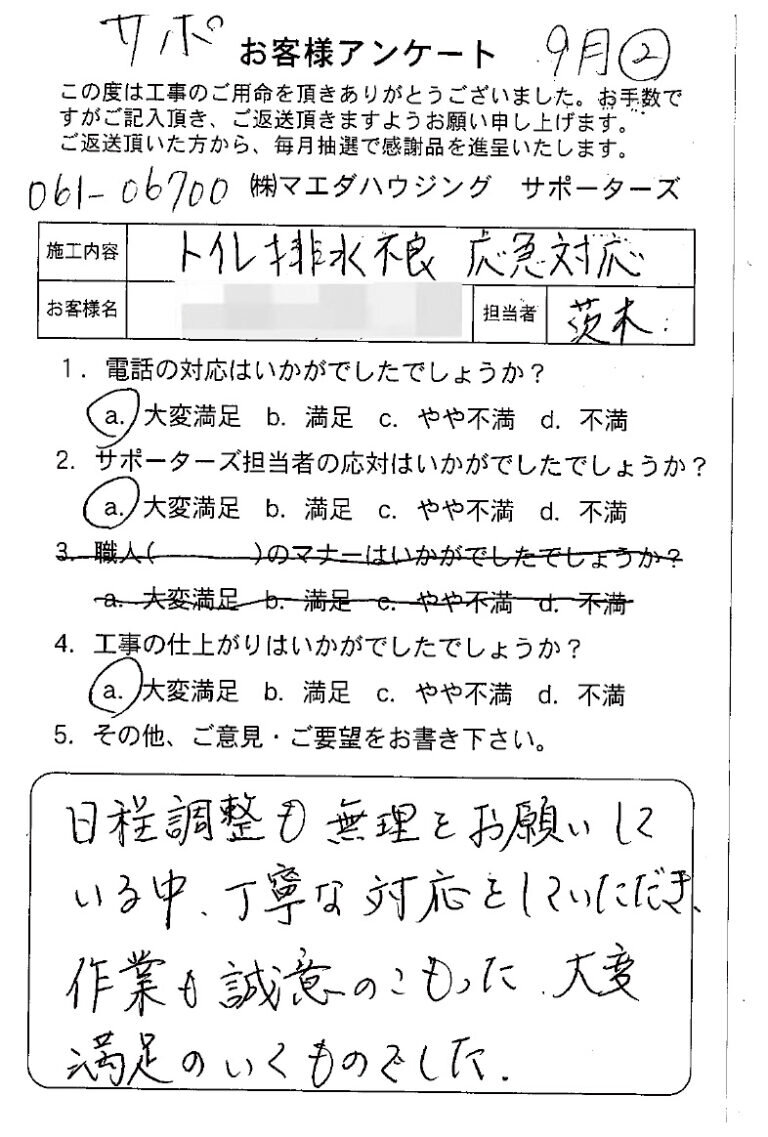 サポ お客様アンケート 9月②
この度は工事のご用命を頂きありがとうございました。お手数で
すがご記入頂き、ご返送頂きますようお願い申し上げます。
ご返送頂いた方から、毎月抽選で感謝品を進呈いたします。
061-06700 ㈱マエダハウジング サポーターズ
施工内容 トイレ排水不良 応急対応
お客様名 担当者 茨木
1. 電話の対応はいかがでしたでしょうか？
a. 大変満足 b. 満足 c. やや不満 d. 不満
2. サポーターズ担当者の応対はいかがでしたでしょうか？
a. 大変満足 b. 満足 c. やや不満 d. 不満
3. 職人( )のマナーはいかがでしたでしょうか？
a. 大変満足 b. 満足 c. やや不満 d. 不満
4. 工事の仕上がりはいかがでしたでしょうか？
a. 大変満足 b. 満足 c. やや不満 d. 不満
5. その他、ご意見・ご要望をお書き下さい。
日程調整も無理をお願いして
いる中、丁寧な対応をしていただき、
作業も誠意のこもった、大変
満足のいくものでした.